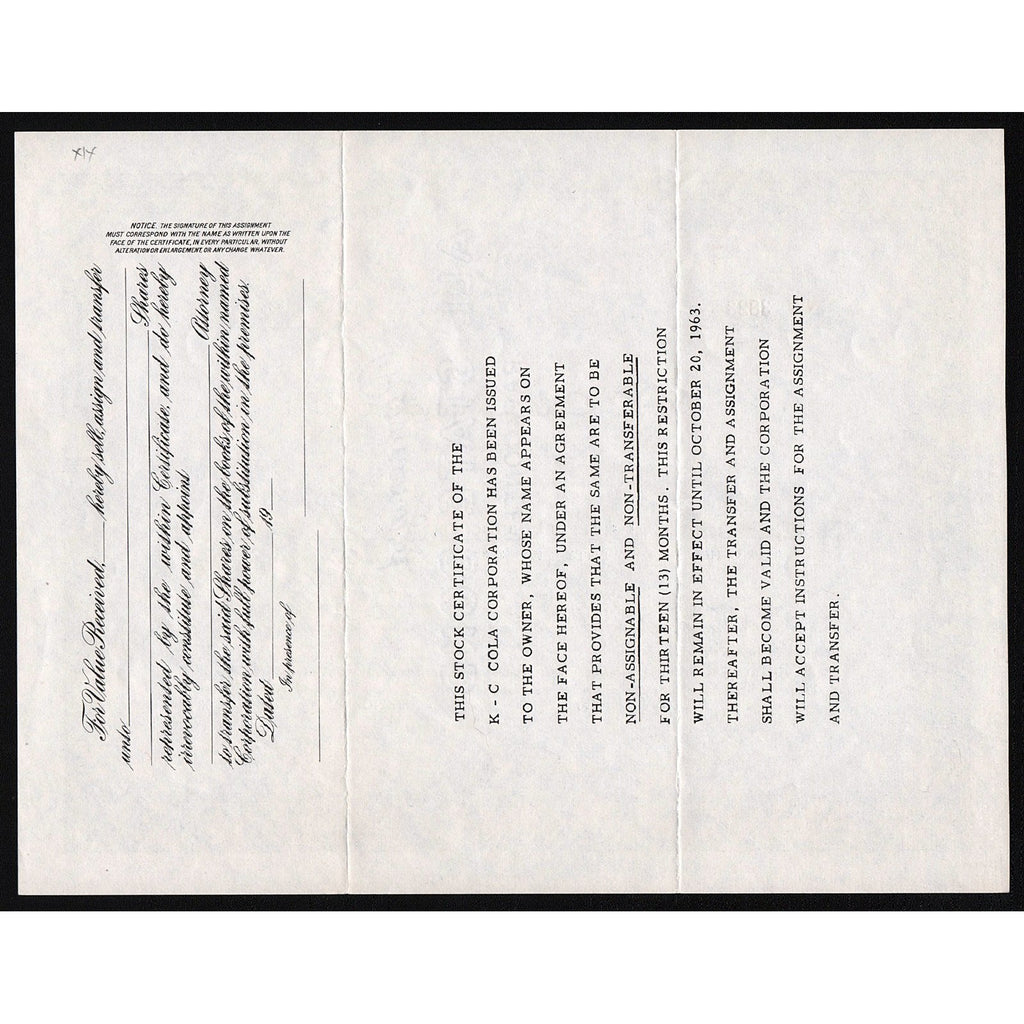 NOTICE. THE SIGNATURE OF THIS ASSIGNMENT
MUST CORRESPOND WITH THE NAME AS WRITTEN UPON THE
FACE OF THE CERTIFICATE, IN EVERY PARTICULAR, WITHOUT
ALTERATION OR ENLARGEMENT, OR ANY CHANGE WHATEVER.
For Value Received, hereby sell, assign and transfer
unto
Shares
represented by the within Certificate, and do hereby
irrevocably constitute and appoint
Attorney
to transfer the said Shares on the books of the within named
Corporation with full power of substitution in the premises.
Dated 19
In presence of
THIS STOCK CERTIFICATE OF THE
K - C COLA CORPORATION HAS BEEN ISSUED
TO THE OWNER, WHOSE NAME APPEARS ON
THE FACE HEREOF, UNDER AN AGREEMENT
THAT PROVIDES THAT THE SAME ARE TO BE
NON-ASSIGNABLE AND NON-TRANSFERABLE
FOR THIRTEEN (13) MONTHS. THIS RESTRICTION
WILL REMAIN IN EFFECT UNTIL OCTOBER 20, 1963.
THEREAFTER, THE TRANSFER AND ASSIGNMENT
SHALL BECOME VALID AND THE CORPORATION
WILL ACCEPT INSTRUCTIONS FOR THE ASSIGNMENT
AND TRANSFER.